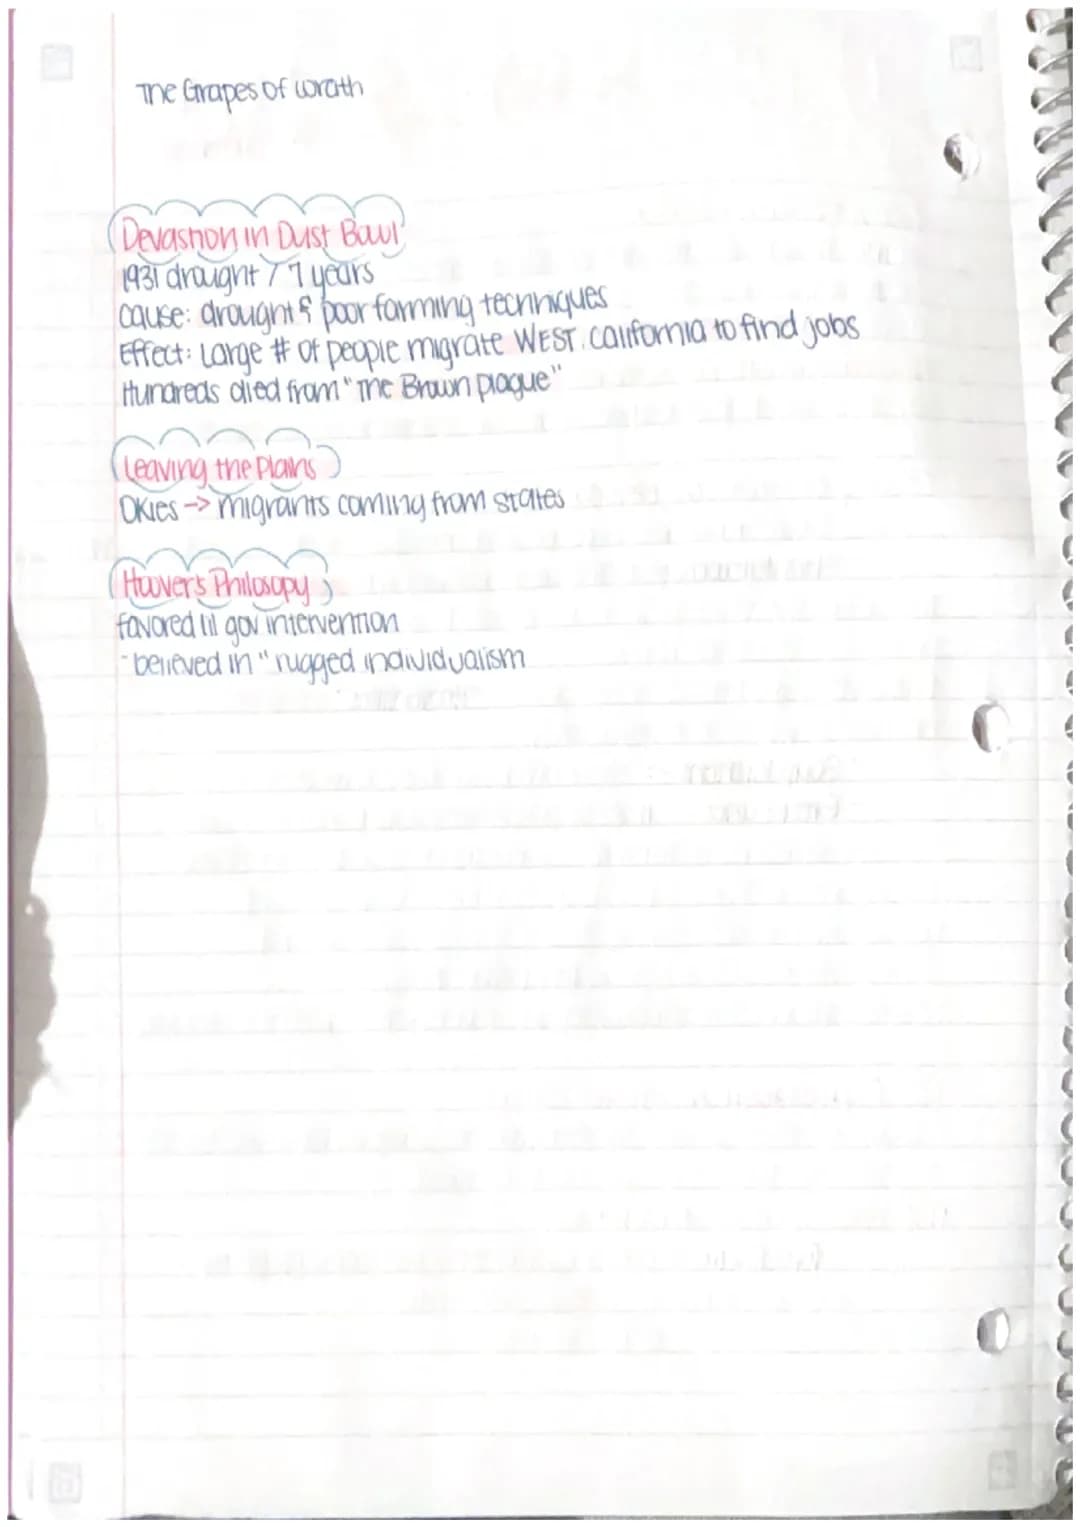 The Grapes of Wrath
Devastion in Dust Bowl
1931 draught / 7 years
cause: drought & poor farming techniques
Effect: Large # of people migrate WEST. California to find jobs
Hundreds died from "The Brown plague"
Leaving the Plains
Okies -> migrants coming from states
Hoover's Philosopy
favored lil gov intervention
- believed in "rugged individualism